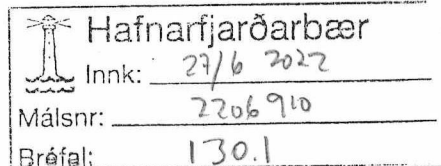 Hafnarfjarðarbær
Innk: 27/6 2022
Málsnr: 2206910
Bréfal: 130.1